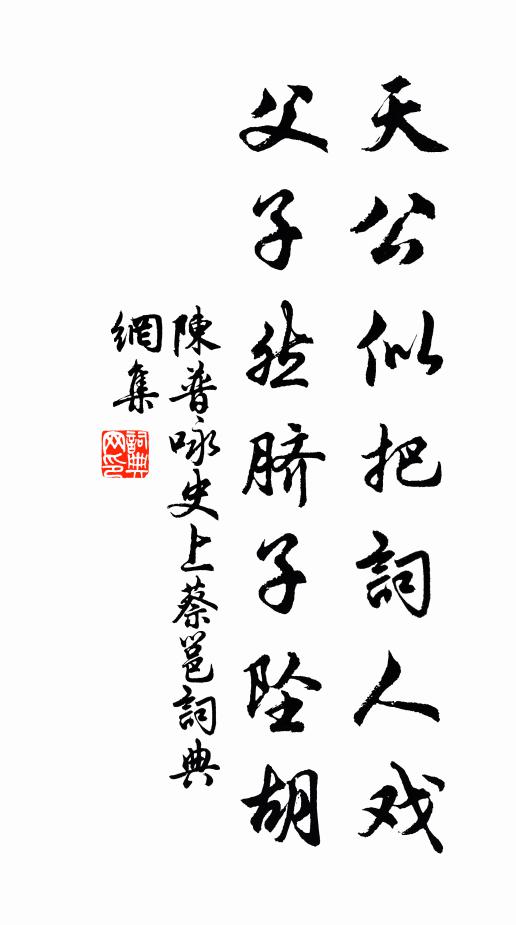 天公似把詞人戏
父子然脐子坠胡
陳普咏史上蔡邕詞典
網集
詞典
网印